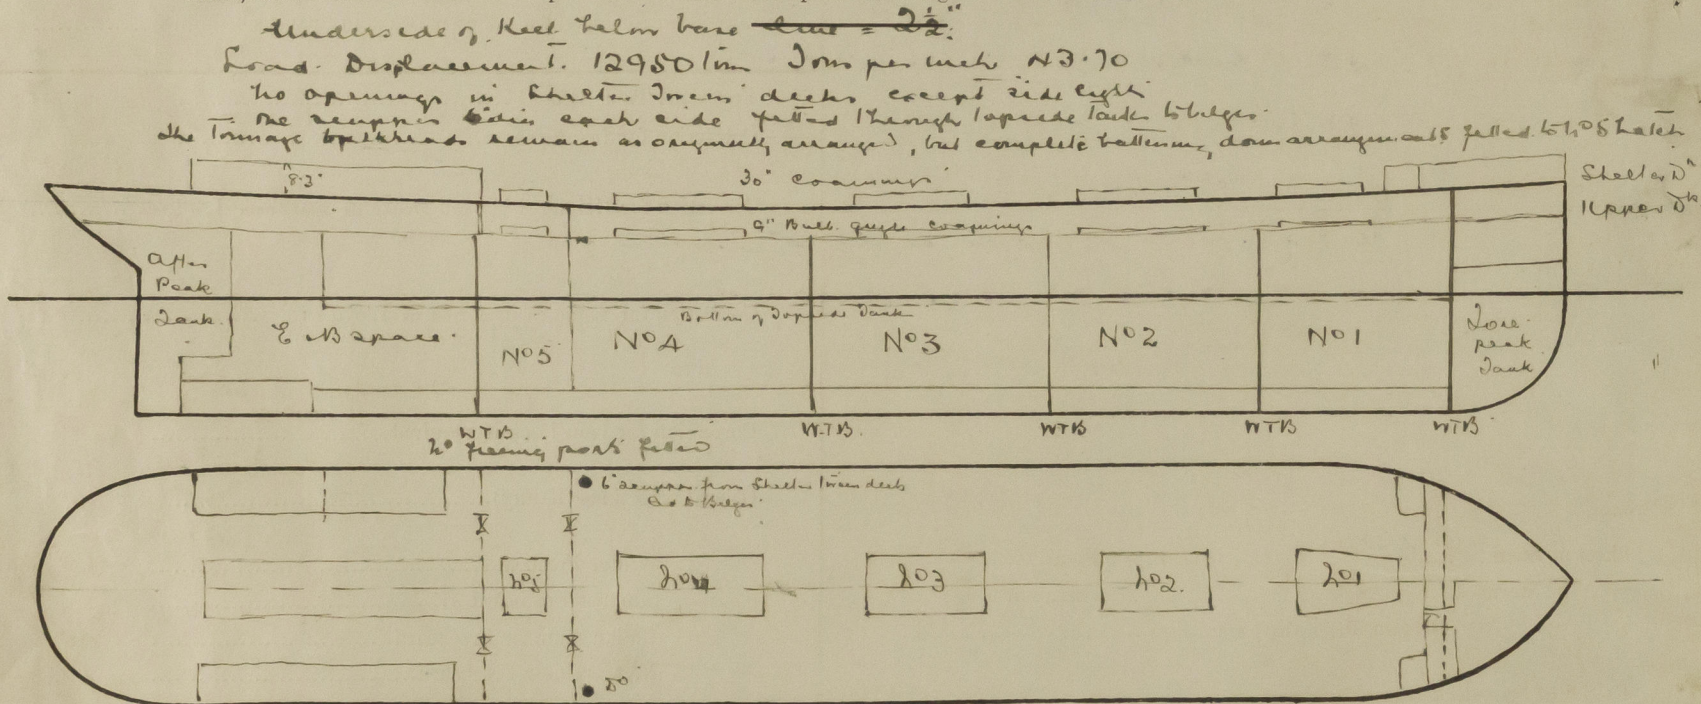 Underside of Keel below base line = 2½".
Load Displacement. 12950 tons Tons per inch 43.70
No openings in Shelter Tween decks except side light
One scupper 6" dia each side fitted through topside tanks to bilges
The Tonnage bulkheads remain as originally arranged, but complete battening down arrangements fitted to No 5 hatch
8'.3"
30" coamings
Shelter Dk
Upper Dk
9" Bulb angle coamings
After Peak Tank.
Bottom of Topside Tank
E & B space.
No 5
No 4
No 3
No 2
No 1
Fore peak Tank
WTB
WTB.
WTB
WTB
WTB
No freeing ports fitted
6" scupper from Shelter tween deck
to Bilges
No 5
No 4
No 3
No 2.
No 1
Do